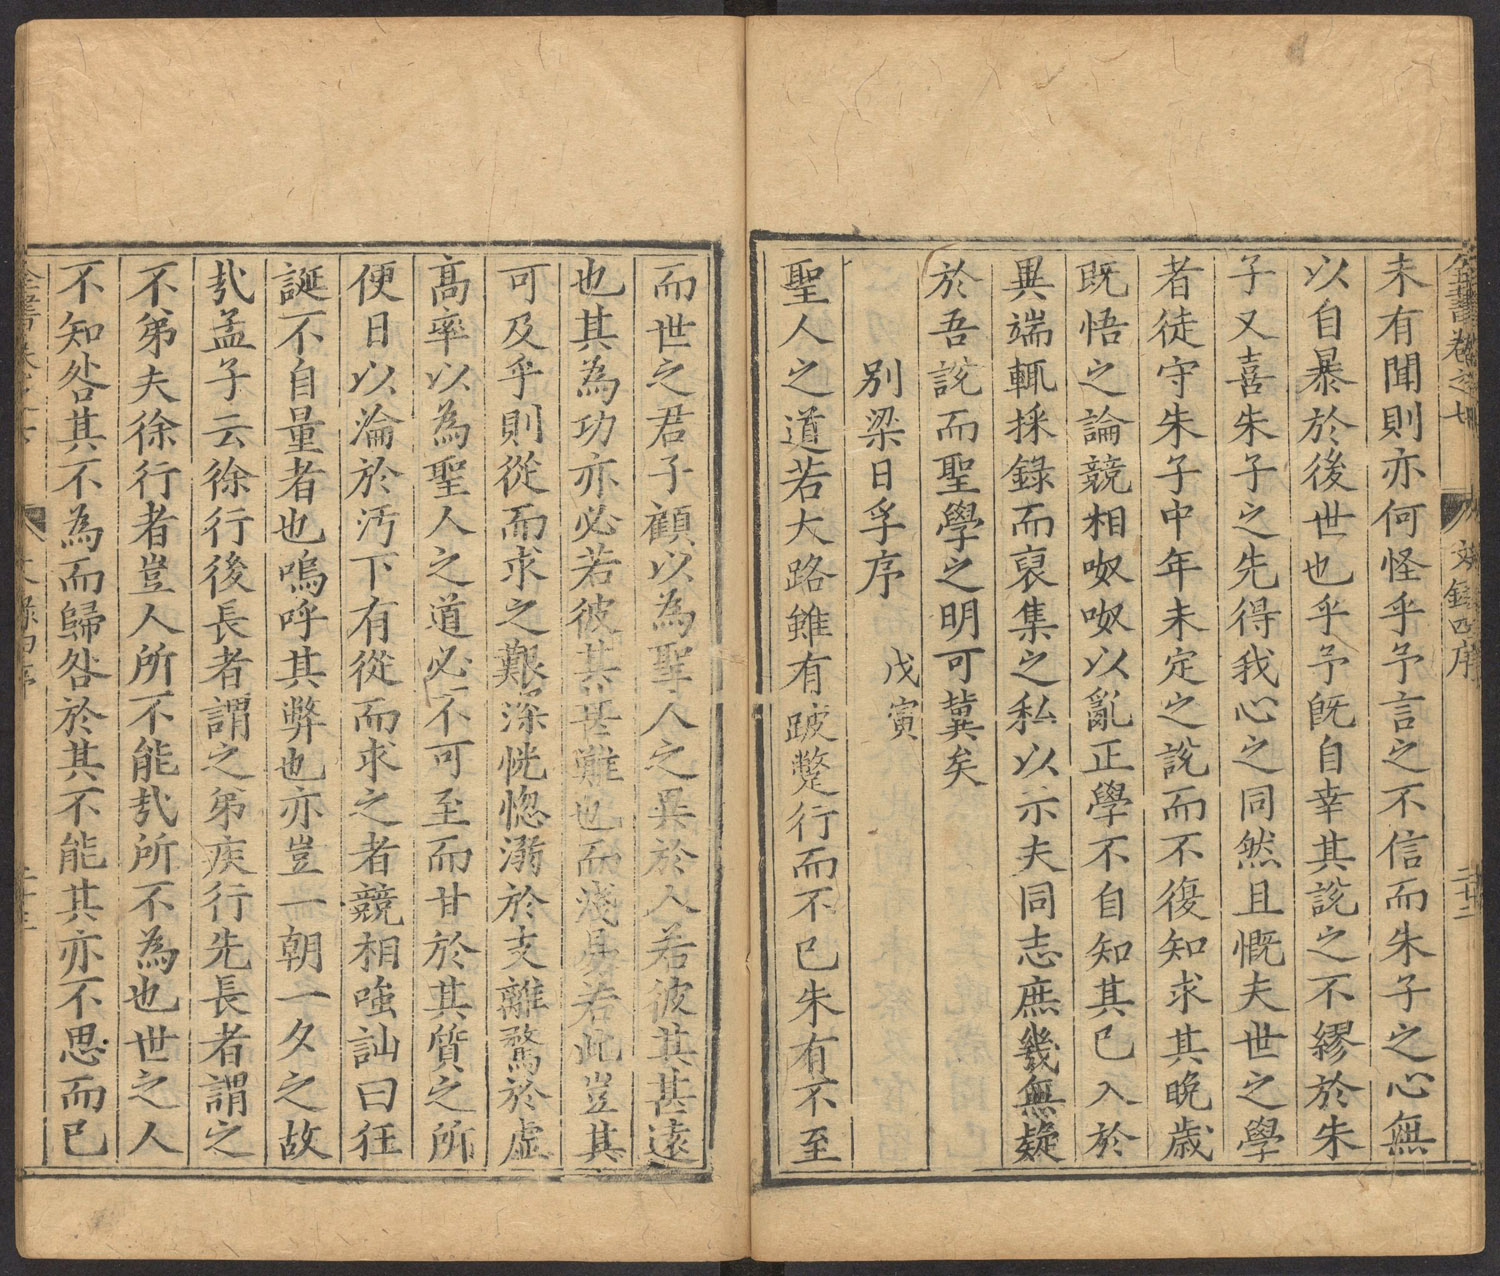 全書卷之七 文錄四序 二十二
未有聞則亦何怪乎予言之不信而朱子之心無
以自暴於後世也乎予旣自幸其說之不繆於朱
子又喜朱子之先得我心之同然且慨夫世之學
者徒守朱子中年未定之說而不復知求其晚歲
既悟之論競相呶呶以亂正學不自知其已入於
異端輒採錄而裒集之私以示夫同志庶幾無疑
於吾說而聖學之明可冀矣
別梁日孚序 戊寅
聖人之道若大路雖有跛蹩行而不已朱有不至
而世之君子顧以為聖人之異於人若彼其甚遠
也其為功亦必若彼其甚難也而淺昜若此豈其
可及乎則從而求之艱深恍惚溺於支離騖於虛
高率以為聖人之道必不可至而甘於其質之所
便日以淪於汚下有從而求之者競相嗤訕曰狂
誕不自量者也嗚呼其弊也亦豈一朝一夕之故
㢤孟子云徐行後長者謂之弟疾行先長者謂之
不弟夫徐行者豈人所不能㢤所不為也世之人
不知咎其不為而歸咎於其不能其亦不思而已
全書卷之七 文錄四序